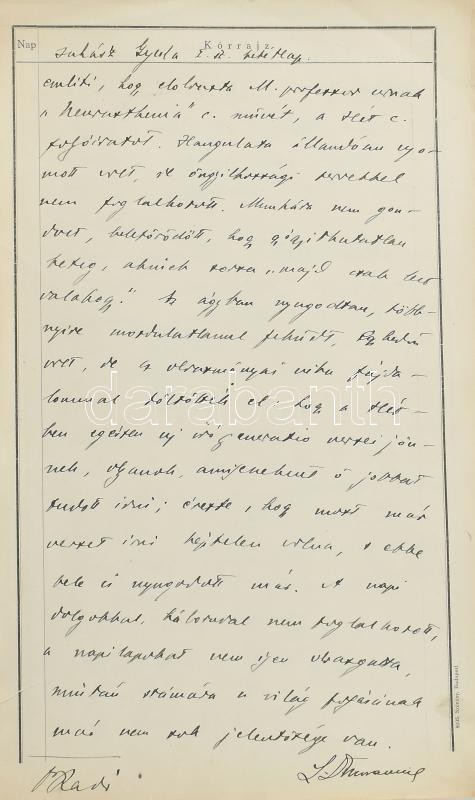 Nap
Kórrajz.
Juhász Gyula I. A. beteg lap.
említi, hogy elolvasta M. professzor urnak
a "Neurasthenia" c. művét, a Hét c.
folyóiratot. Hangulata állandóan nyo-
mott volt, de öngyilkossági tervekkel
nem foglalkozott. Munkára nem gon-
dolt, beletörődött, hogy gyógyíthatatlan
beteg, akinek sorsa "majd csak lesz
valahogy." Az ágyban nyugodtan, több-
nyire mozdulatlanul feküdt,
volt, de az olvasmányai néha fájda-
lommal töltötték el: hogy a Hét-
ben egészen új író generatio versei jön-
nek, olyanok, amilyeneknél ő jobbat
tudott írni; érezte, hogy most már
verset írni képtelen volna, s ebbe
bele is nyugodott már. A napi
dolgokkal, háborúval nem foglalkozott,
a napilapokat nem igen olvasgatta,
miután számára a világ folyásának
már nem sok jelentősége van.
darabanth